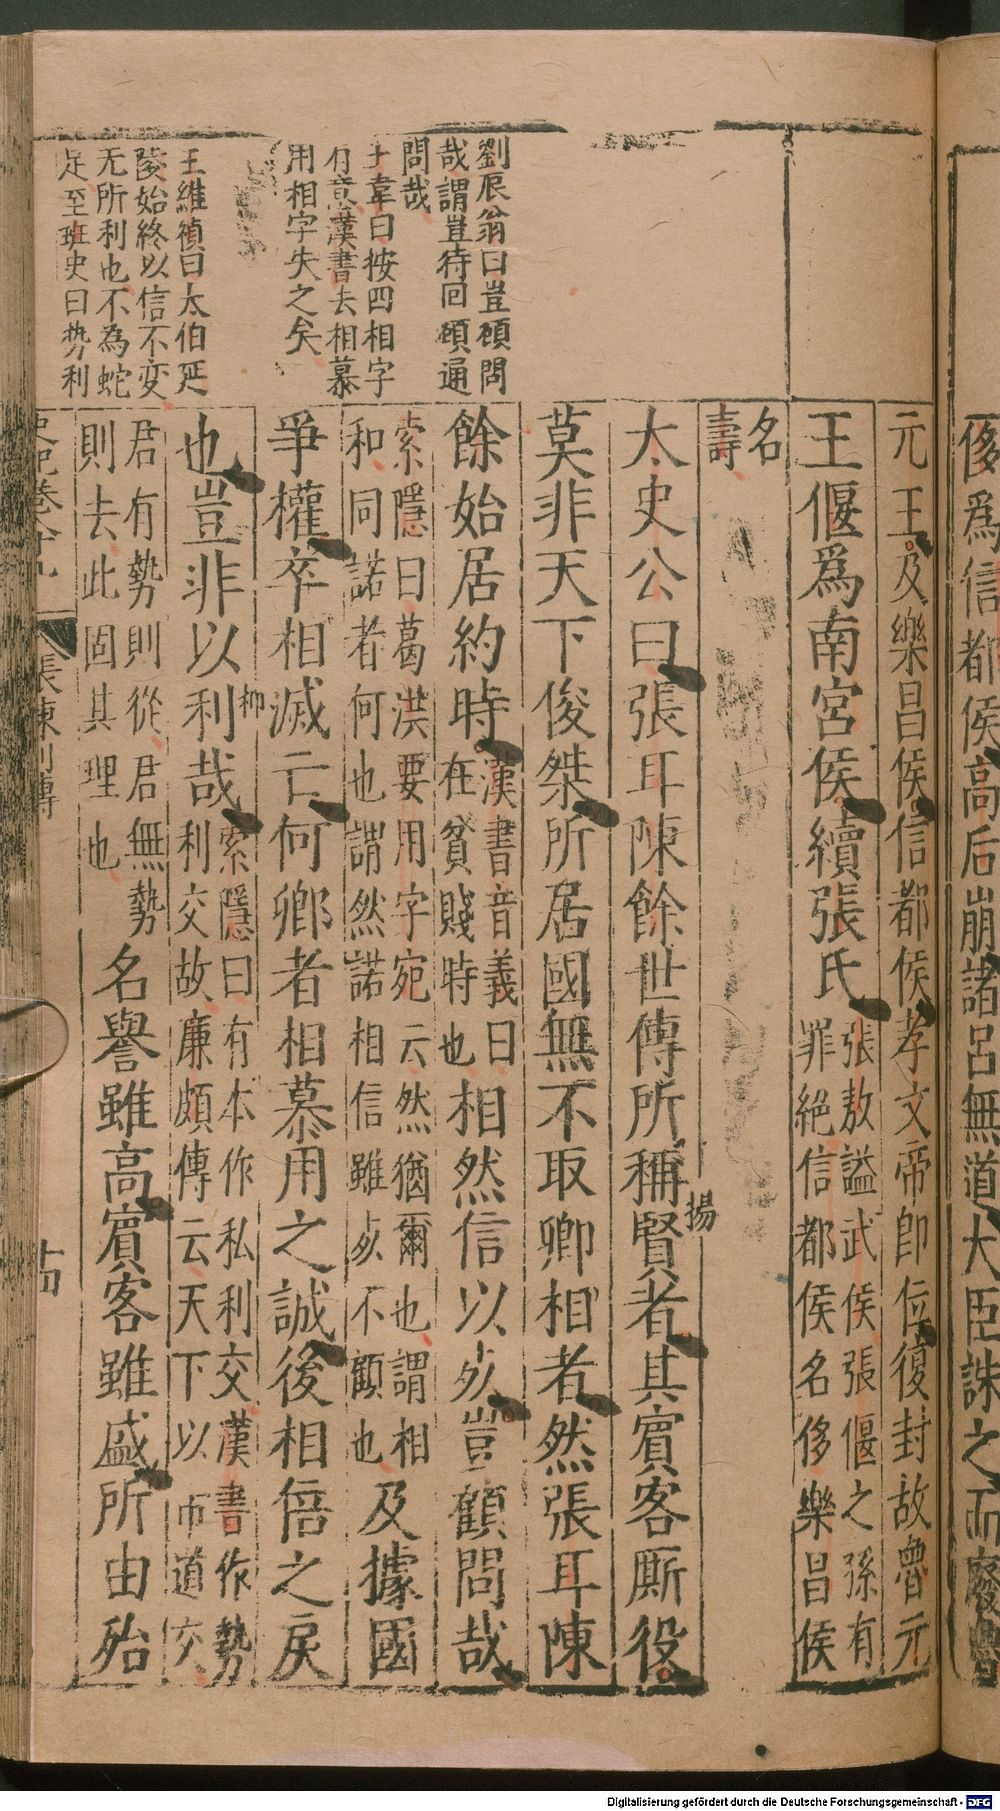 侈爲信都侯高后崩諸呂無道大臣誅之而廢魯
元王及樂昌侯信都侯孝文帝卽位復封故魯元
王偃爲南宮侯續張氏
張敖謚武侯張偃之孫有
罪絕信都侯名侈樂昌侯
名
壽
太史公曰張耳陳餘世傳所稱賢者其賓客厮役
揚
莫非天下俊桀所居國無不取卿相者然張耳陳
餘始居約時
漢書音義曰
在貧賤時也
相然信以死豈顧問哉
索隱曰葛洪要用字宛云然猶爾也謂相
和同諾者何也謂然諾相信雖死不顧也
及據國
爭權卒相滅亡何鄉者相慕用之誠後相倍之戾
也豈非以利哉
柳
索隱曰有本作私利交漢書作勢
利交故廉頗傳云天下以市道交
君有勢則從君無勢
則去此固其理也
名譽雖高賓客雖盛所由殆
史記卷八十九
張陳列傳
十四
劉辰翁曰豈顧問
哉謂豈待回顧通
問哉
王韋曰按四相字
有意漢書去相慕
用相字失之矣
王維禎曰太伯延
陵始終以信不变
无所利也不為蛇
足至班史曰势利
Digitalisierung gefördert durch die Deutsche Forschungsgemeinschaft - DFG